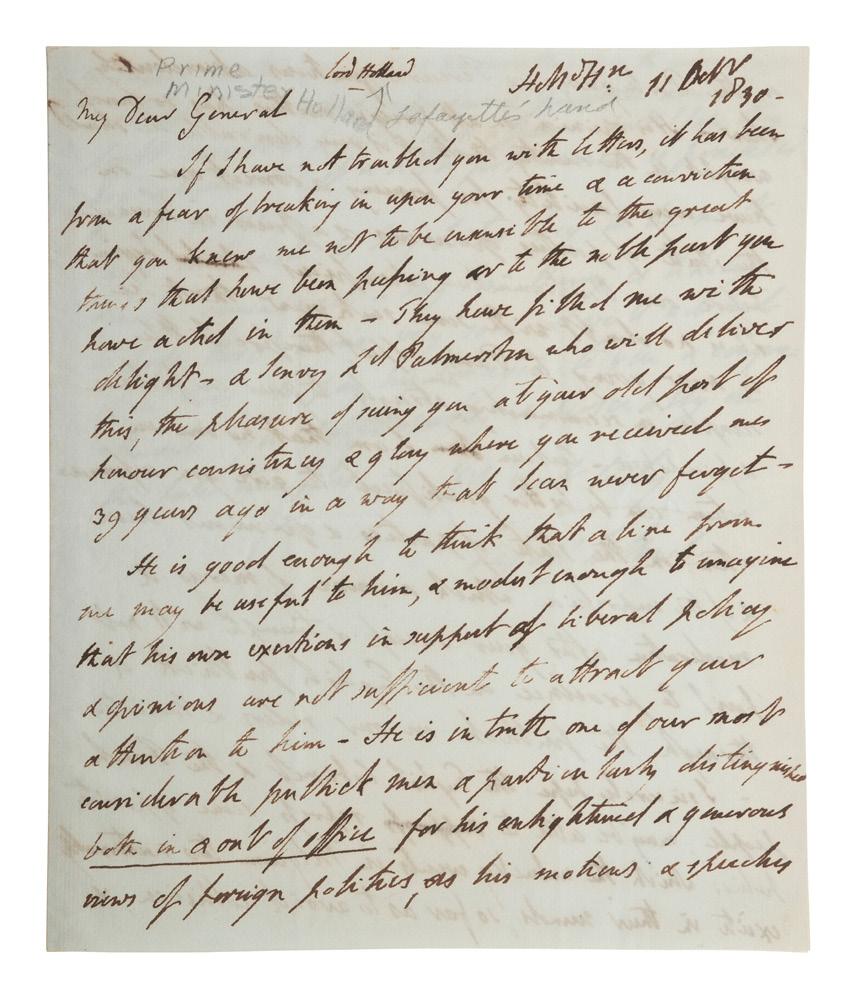 Prime
Minister Holland
Lord Holland
Lafayette's hand
11 Octr
1830 -
My Dear General
If I have not troubled you with letters, it has been
from a fear of breaking in upon your time & a conviction
that you knew me not to be insensible to the great
things that have been passing or to the noble part you
have acted in them - They have filled me with
delight - & I envy Ld Palmerston who will deliver
this, the pleasure of seeing you at your old post of
honour consistency & glory where you received me
39 years ago in a way that I can never forget -
He is good enough to think that a line from
me may be useful to him, & modest enough to imagine
that his own exertions in support of liberal policy
& opinions are not sufficient to attract your
attention to him - He is in truth one of our most
considerable publick men & particularly distinguished
both in & out of office for his enlightened & generous
views of foreign politics, as his motions & speeches